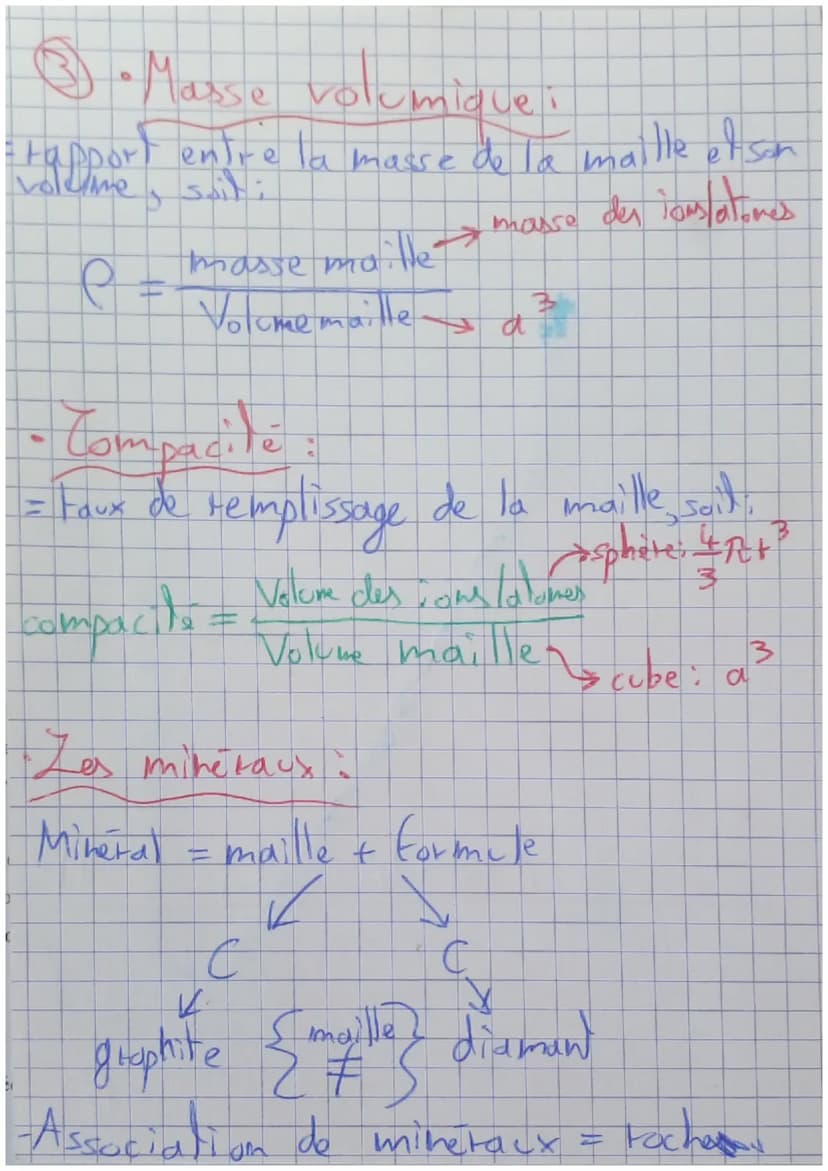 ③ • Masse volumique :
= rapport entre la masse de la maille et son
volume, soit :
ρ = masse maille / Volume maille
→ masse des ions/atomes
→ a³
• Compacité :
= taux de remplissage de la maille, soit :
→ sphère : 4/3 πr³
compacité = Volume des ions/atomes / Volume maille
→ cube : a³
• Les minéraux :
Minéral = maille + formule
C C
graphite { maille ≠ } diamant
- Association de minéraux = roche